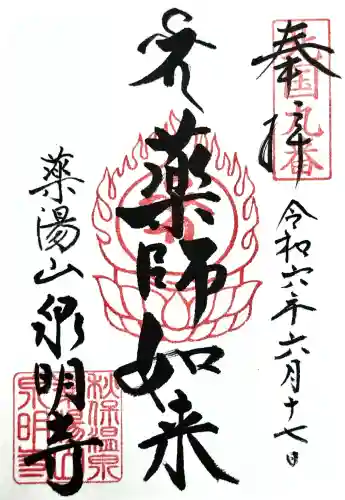 奉拝
令和六年六月十七日
薬師如来
薬湯山泉明寺
秋保温泉
薬湯山
泉明寺